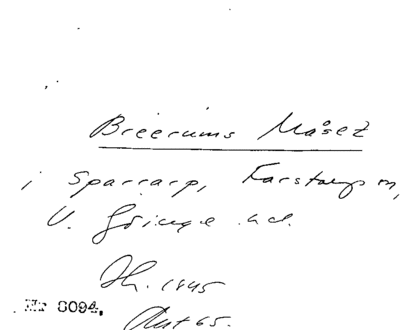 Breerums Måsez
i Sparrarp, Farstorps sn,
V. Göinge hd.
Th. 1945
Nr 8094.
Aut 65.